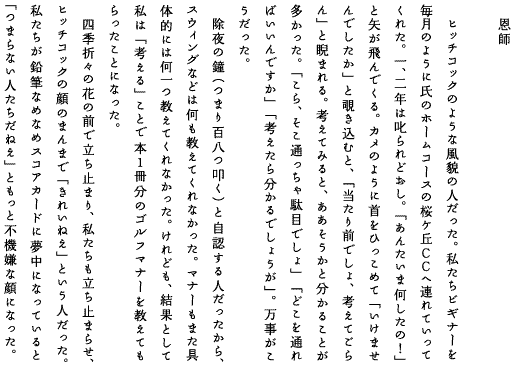 恩師
ヒッチコックのような風貌の人だった。私たちビギナーを
毎月のように氏のホームコースの桜ヶ丘ＣＣへ連れていって
くれた。一、二年は叱られどおし。「あんたいま何したの！」
と矢が飛んでくる。カメのように首をひっこめて「いけませ
んでしたか」と覗き込むと、「当たり前でしょ、考えてごら
ん」と睨まれる。考えてみると、ああそうかと分かることが
多かった。「こら、そこ通っちゃ駄目でしょ」「どこを通れ
ばいいんですか」「考えたら分かるでしょうが」。万事がこ
うだった。
除夜の鐘（つまり百八つ叩く）と自認する人だったから、
スウィングなどは何も教えてくれなかった。マナーもまた具
体的には何一つ教えてくれなかった。けれども、結果として
私は「考える」ことで本１冊分のゴルフマナーを教えても
らったことになった。
四季折々の花の前で立ち止まり、私たちも立ち止まらせ、
ヒッチコックの顔のまんまで「きれいねぇ」という人だった。
私たちが鉛筆なめなめスコアカードに夢中になっていると
「つまらない人たちだねぇ」ともっと不機嫌な顔になった。